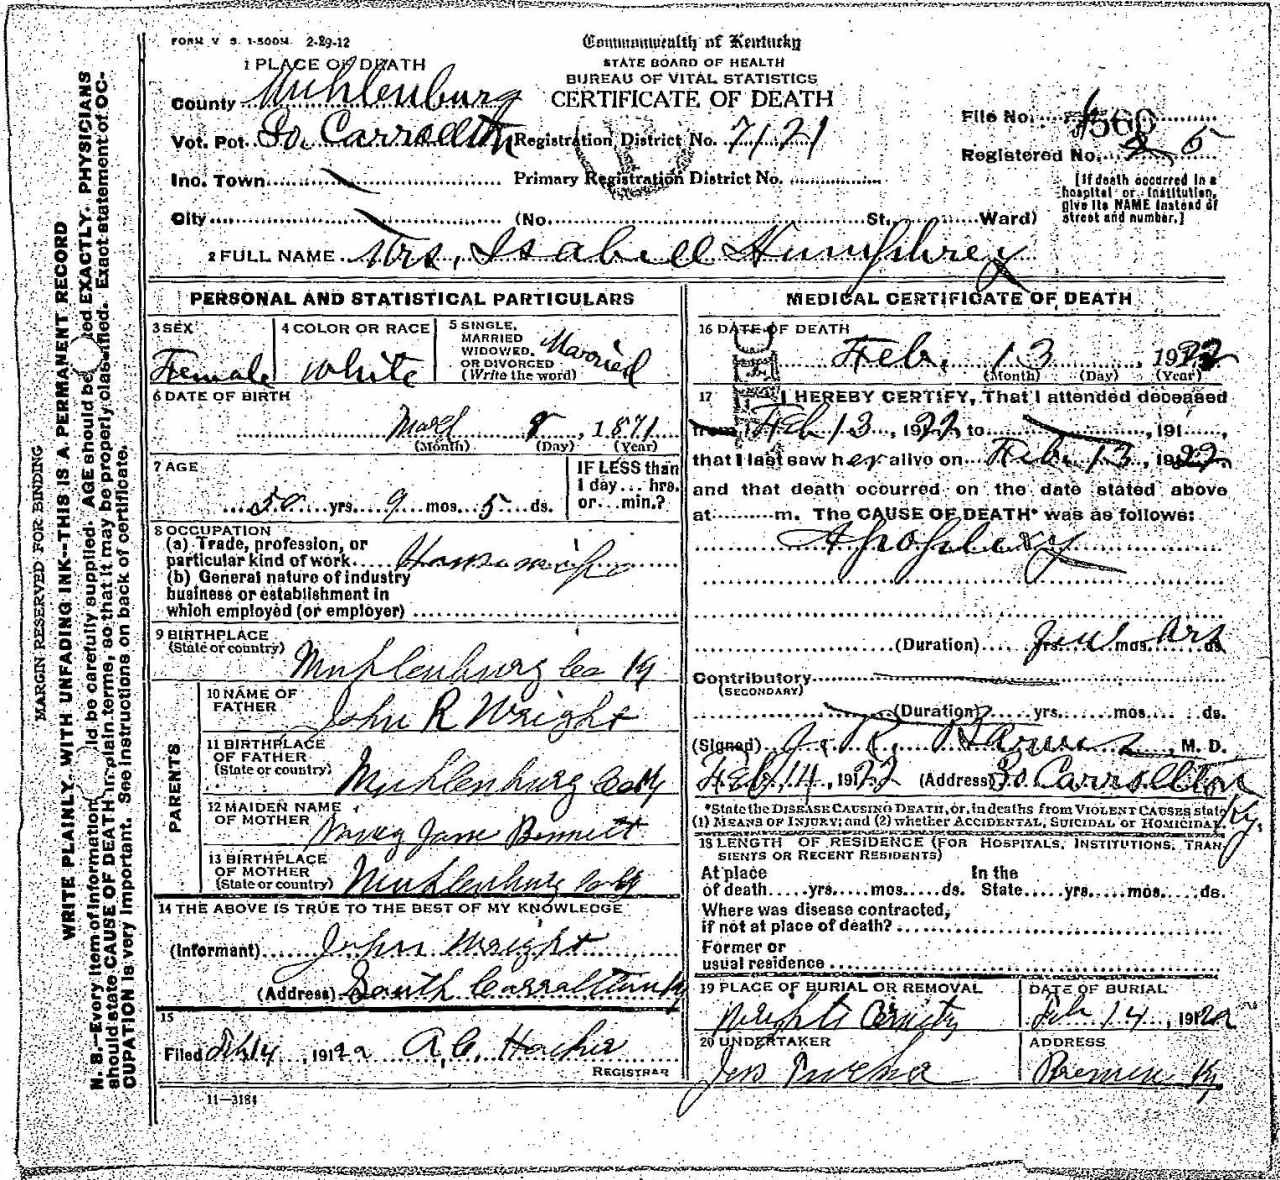 FORM V. S. 1-500M. 2-29-12
Commonwealth of Kentucky
STATE BOARD OF HEALTH
BUREAU OF VITAL STATISTICS
CERTIFICATE OF DEATH
1 PLACE OF DEATH
County Muhlenburg
Vot. Pct. So. Carrollton
Registration District No. 7121
File No. 4560
Registered No. 5
Inc. Town
Primary Registration District No.
[If death occurred in a hospital or institution, give its NAME instead of street and number.]
City (No. St., Ward)
2 FULL NAME Mrs. Isabell Humphrey
PERSONAL AND STATISTICAL PARTICULARS
3 SEX
Female
4 COLOR OR RACE
White
5 SINGLE, MARRIED WIDOWED, OR DIVORCED (Write the word)
Married
6 DATE OF BIRTH
March 8, 1871
(Month) (Day) (Year)
7 AGE
50 yrs. 9 mos. 5 ds.
IF LESS than 1 day... hrs. or...min.?
8 OCCUPATION
(a) Trade, profession, or
particular kind of work Housewife
(b) General nature of industry
business or establishment in
which employed (or employer)
9 BIRTHPLACE
(State or country)
Muhlenburg Co Ky
PARENTS
10 NAME OF FATHER
John R Wright
11 BIRTHPLACE OF FATHER
(State or country)
Muhlenburg Co Ky
12 MAIDEN NAME OF MOTHER
Jane Bennett
13 BIRTHPLACE OF MOTHER
(State or country)
Muhlenburg Co Ky
14 THE ABOVE IS TRUE TO THE BEST OF MY KNOWLEDGE
(Informant) John Wright
(Address) South Carrollton Ky
15
Filed Feb 14, 1922
REGISTRAR
11—3184
MEDICAL CERTIFICATE OF DEATH
16 DATE OF DEATH
Feb. 13 1922
(Month) (Day) (Year)
17 I HEREBY CERTIFY, That I attended deceased
from Feb 13, 1922, to , 191
that I last saw her alive on Feb. 13, 1922
and that death occurred on the date stated above
at m. The CAUSE OF DEATH* was as follows:
Apoplexy
(Duration) few hrs yrs. mos. ds.
Contributory
(SECONDARY)
(Duration) yrs. mos. ds.
(Signed) J. R. Barnes, M. D.
Feb 14, 1922 (Address) So Carrollton Ky.
*State the DISEASE CAUSING DEATH, or, in deaths from VIOLENT CAUSES state
(1) MEANS OF INJURY; and (2) whether ACCIDENTAL, SUICIDAL or HOMICIDAL.
18 LENGTH OF RESIDENCE (FOR HOSPITALS, INSTITUTIONS, TRANSIENTS OR RECENT RESIDENTS)
At place of death yrs. mos. ds. In the State yrs. mos. ds.
Where was disease contracted,
if not at place of death?
Former or
usual residence
19 PLACE OF BURIAL OR REMOVAL
DATE OF BURIAL
Feb 14, 1922
20 UNDERTAKER
ADDRESS
Bremen Ky
MARGIN RESERVED FOR BINDING
WRITE PLAINLY, WITH UNFADING INK--THIS IS A PERMANENT RECORD
N. B.—Every item of information should be carefully supplied. AGE should be stated EXACTLY. PHYSICIANS
should state CAUSE OF DEATH in plain terms, so that it may be properly classified. Exact statement of OC-
CUPATION is very important. See instructions on back of certificate.